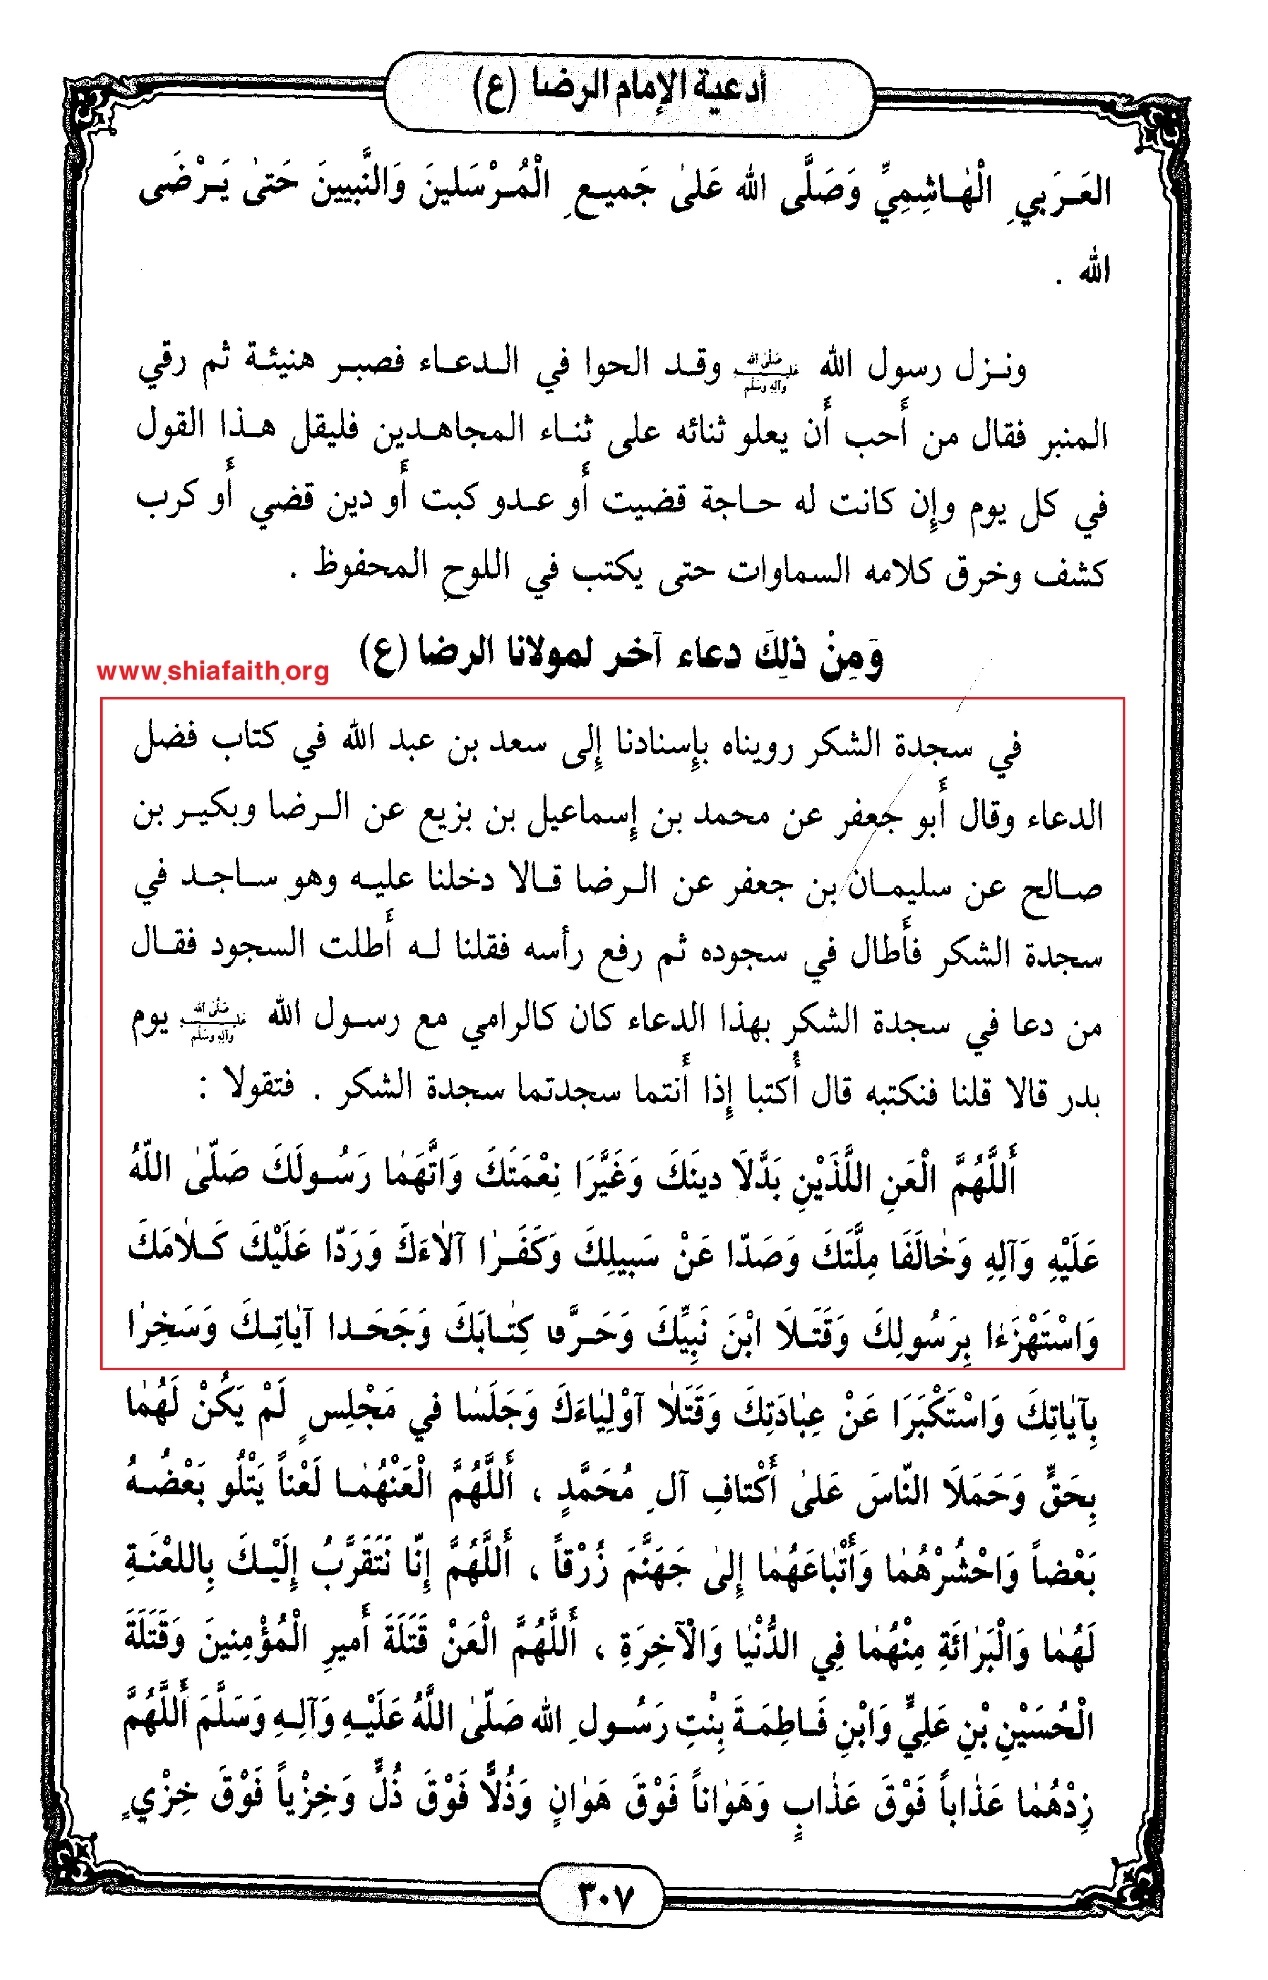 أدعية الإمام الرضا (ع)
العَرَبي الْهٰاشِمِيِّ وَصَلَّى الله عَلىٰ جَميعِ الْمُرْسَلينَ وَالنَّبيينَ حَتىٰ يَرْضَى
الله .
ونزل رسول الله صَلَّى الله عَلَيْهِ وَآلِهِ وَسَلَّم وقد الحوا في الدعاء فصبر هنيئة ثم رقي
المنبر فقال من أحب أن يعلو ثنائه على ثناء المجاهدين فليقل هذا القول
في كل يوم وإن كانت له حاجة قضيت أو عدو كبت أو دين قضي أو كرب
كشف وخرق كلامه السماوات حتى يكتب في اللوح المحفوظ .
وَمِنْ ذلِكَ دعاء آخر لمولانا الرضا (ع)
www.shiafaith.org
في سجدة الشكر رويناه بإسنادنا إلى سعد بن عبد الله في كتاب فضل
الدعاء وقال أبو جعفر عن محمد بن إسماعيل بن بزيع عن الرضا وبكير بن
صالح عن سليمان بن جعفر عن الرضا قالا دخلنا عليه وهو ساجد في
سجدة الشكر فأطال في سجوده ثم رفع رأسه فقلنا له أطلت السجود فقال
من دعا في سجدة الشكر بهذا الدعاء كان كالرامي مع رسول الله صَلَّى الله عَلَيْهِ وَآلِهِ وَسَلَّم يوم
بدر قالا قلنا فنكتبه قال أُكتبا إذا أنتما سجدتما سجدة الشكر . فتقولا :
أَللَّهُمَّ الْعَنِ اللَّذَيْنِ بَدَّلَا دينَكَ وَغَيَّرَا نِعْمَتَكَ وَاتَّهَمٰا رَسُولَكَ صَلّىٰ اللّهُ
عَلَيْهِ وَآلِهِ وَخٰالَفَا مِلَّتَكَ وَصَدّا عَنْ سَبيلِكَ وَكَفَرٰا آلاٰءَكَ وَرَدّا عَلَيْكَ كَلاٰمَكَ
وَاسْتَهْزَءٰا بِرَسُولِكَ وَقَتَلَا ابْنَ نَبِيِّكَ وَحَرَّفا كِتٰابَكَ وَجَحَدا آيٰاتِكَ وَسَخِرٰا
بِآيٰاتِكَ وَاسْتَكْبَرَا عَنْ عِبٰادَتِكَ وَقَتَلاٰ آوْلِيٰاءَكَ وَجَلَسٰا في مَجْلِسٍ لَمْ يَكُنْ لَهُمٰا
بِحَقٍّ وَحَمَلَا النّاسَ عَلىٰ أَكْتافِ آلِ مُحَمَّدٍ ، أَللَّهُمَّ الْعَنْهُمٰا لَعْناً يَتْلُو بَعْضُهُ
بَعْضاً وَاحْشُرْهُمٰا وَأَتْبٰاعَهُمٰا إِلىٰ جَهَنَّمَ زُرْقاً ، أَللَّهُمَّ إِنّا نَتَقَرَّبُ إِلَيْكَ بِاللعْنَةِ
لَهُمٰا وَالْبَرٰائَةِ مِنْهُمٰا فِي الدُّنْيٰا وَالْآخِرَةِ ، أَللَّهُمَّ الْعَنْ قَتَلَةَ أَميرِ الْمُؤْمِنينَ وَقَتَلَةَ
الْحُسَيْنِ بْنِ عَلِيٍّ وَابْنِ فَاطِمَةَ بِنْتِ رَسُولِ الله صَلّىٰ اللَّهُ عَلَيْهِ وَآلِهِ وَسَلَّمَ أَللَّهُمَّ
زِدْهُمٰا عَذٰاباً فَوْقَ عَذٰابٍ وَهَوٰاناً فَوْقَ هَوٰانٍ وَذُلاًّ فَوْقَ ذُلٍّ وَخِزْياً فَوْقَ خِزْيٍ
٣٠٧